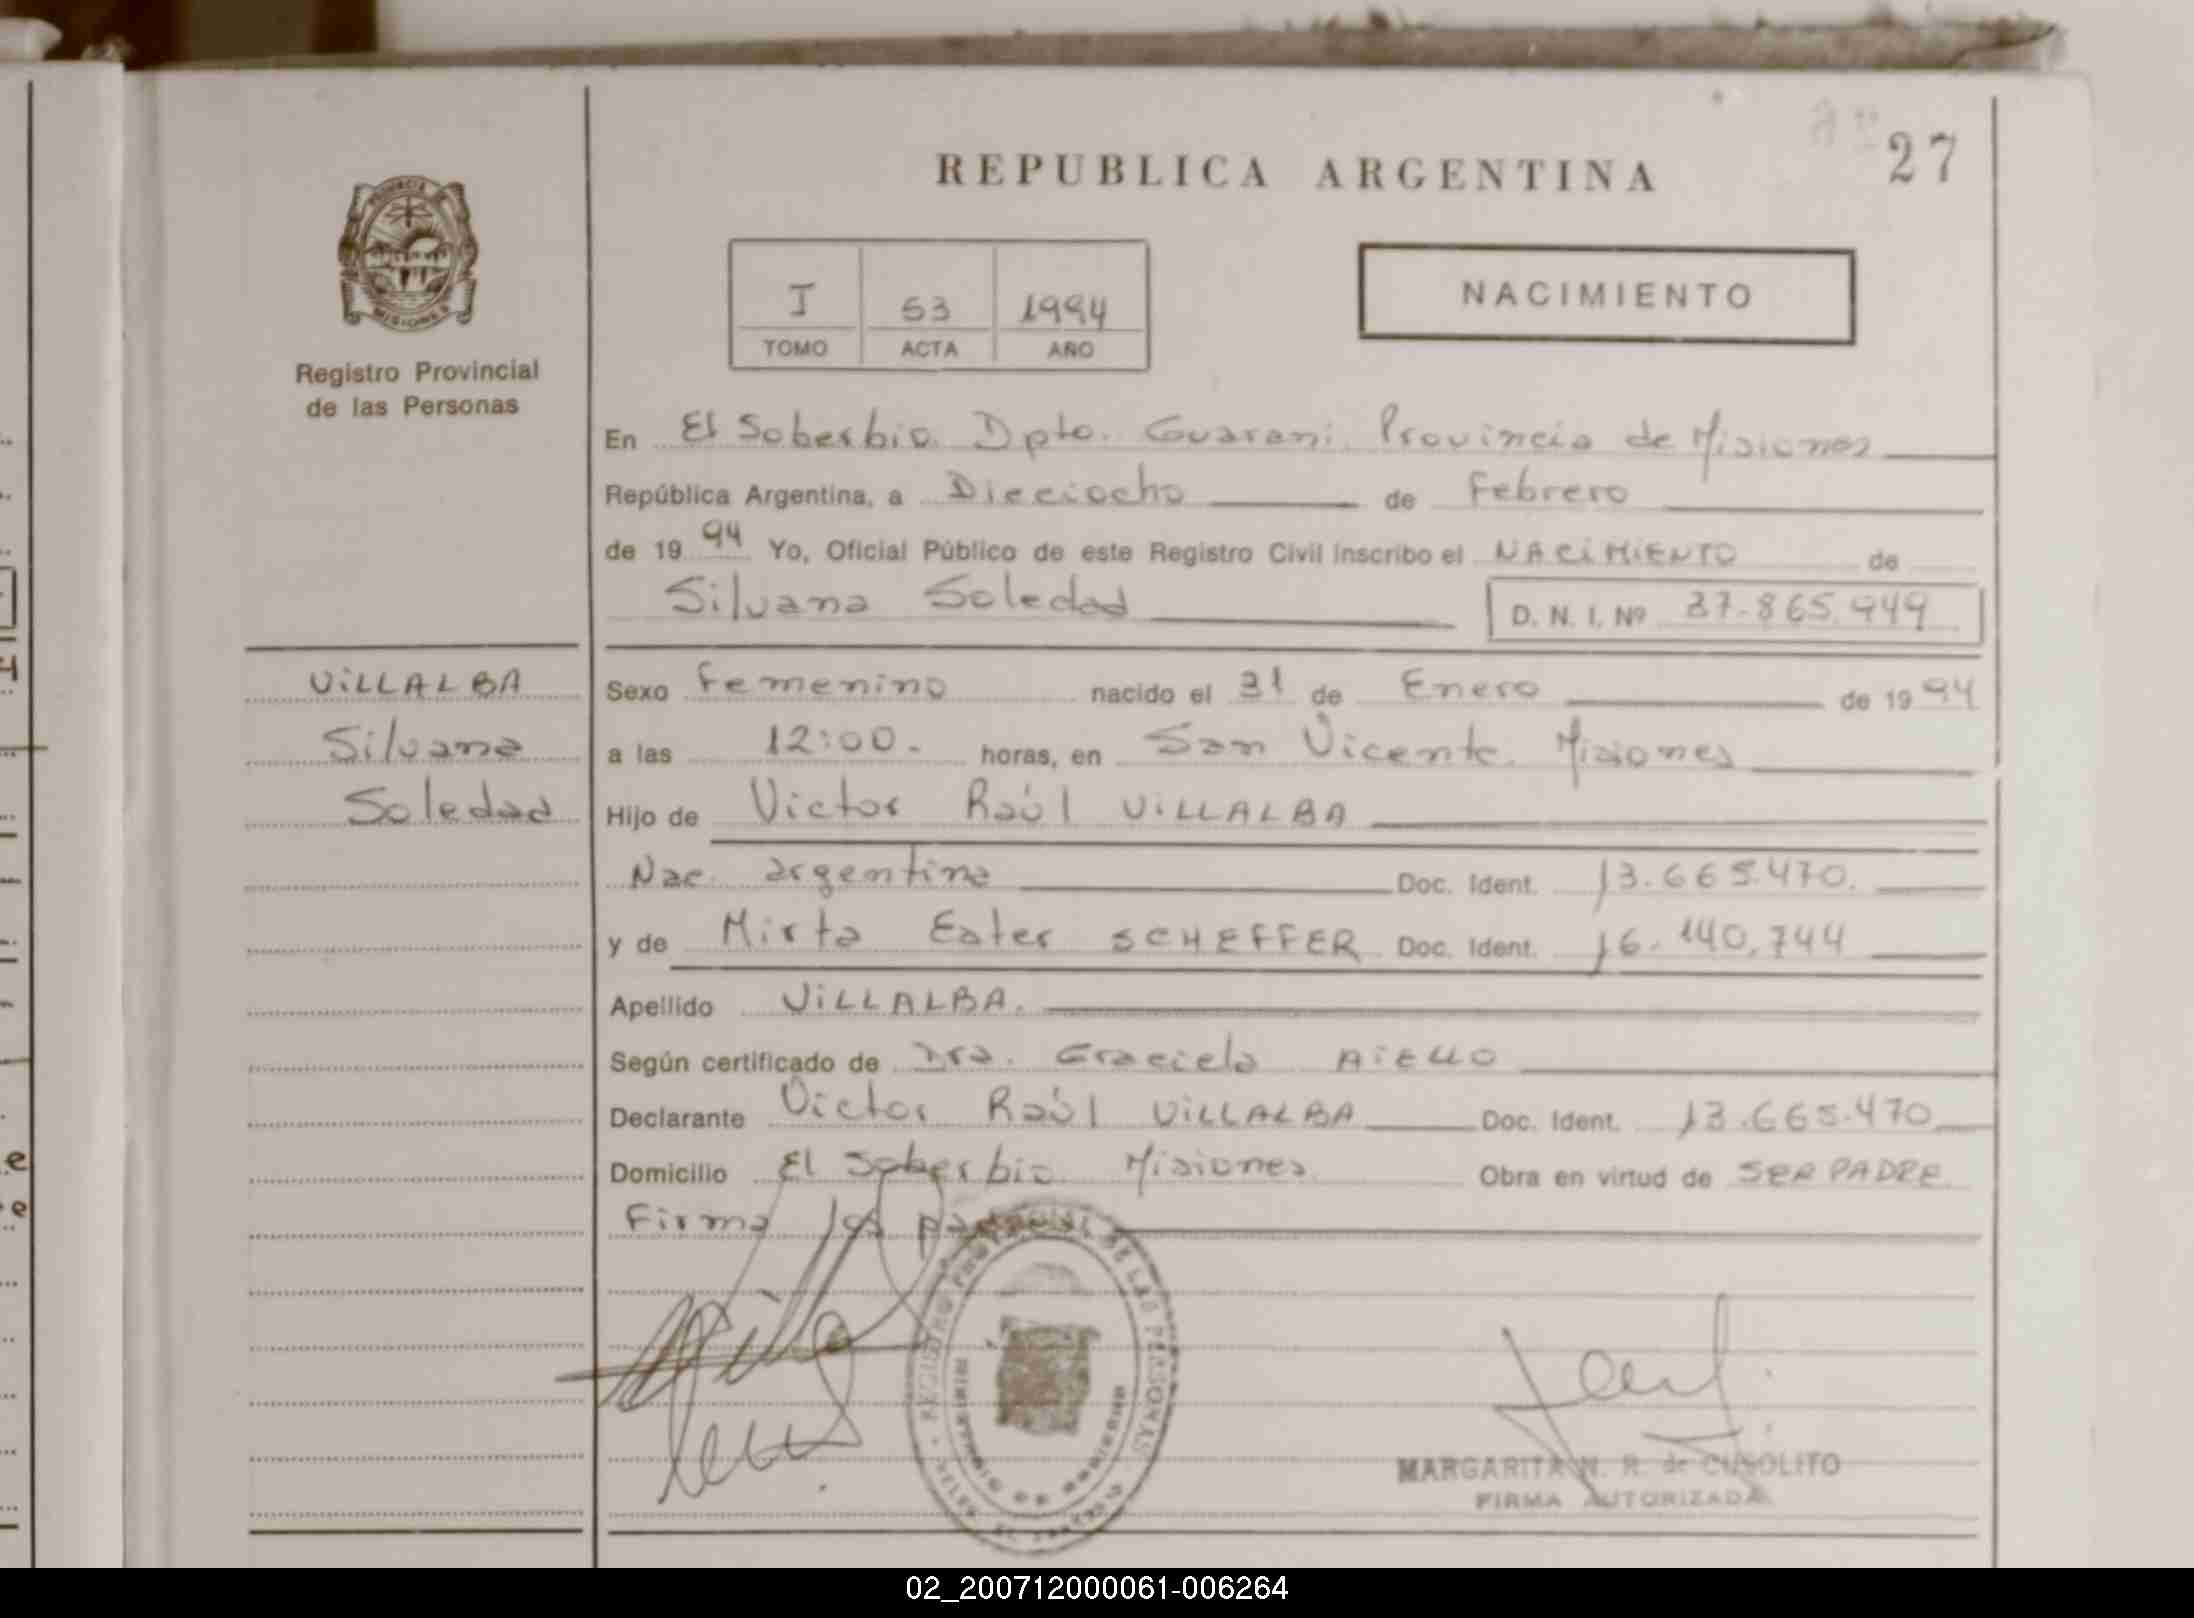 27
REPUBLICA ARGENTINA
NACIMIENTO
I 53 1994
TOMO ACTA AÑO
MISIONES
Registro Provincial
de las Personas
En El Soberbio. Dpto. Guarani. Provincia de Misiones
República Argentina, a Dieciocho de Febrero
de 1994 Yo, Oficial Público de este Registro Civil inscribo el NACIMIENTO de
Silvana Soledad D. N. I. Nº 37.865.949
VILLALBA
Silvana
Soledad
Sexo Femenino nacido el 31 de Enero de 1994
a las 12:00. horas, en San Vicente. Misiones
Hijo de Victor Raúl VILLALBA
Nac. argentina Doc. Ident. 13.665.470.
y de Mirta Ester SCHEFFER Doc. Ident. 16.140.744
Apellido VILLALBA.
Según certificado de Dra. Graciela AIELLO
Declarante Victor Raúl VILLALBA Doc. Ident. 13.665.470
Domicilio El Soberbio. Misiones Obra en virtud de SER PADRE
Firma los
REGISTRO PROVINCIAL DE LAS PERSONAS
MINISTERIO DE GOBIERNO
MARGARITA N. R. de CUSOLITO
FIRMA AUTORIZADA
02_200712000061-006264